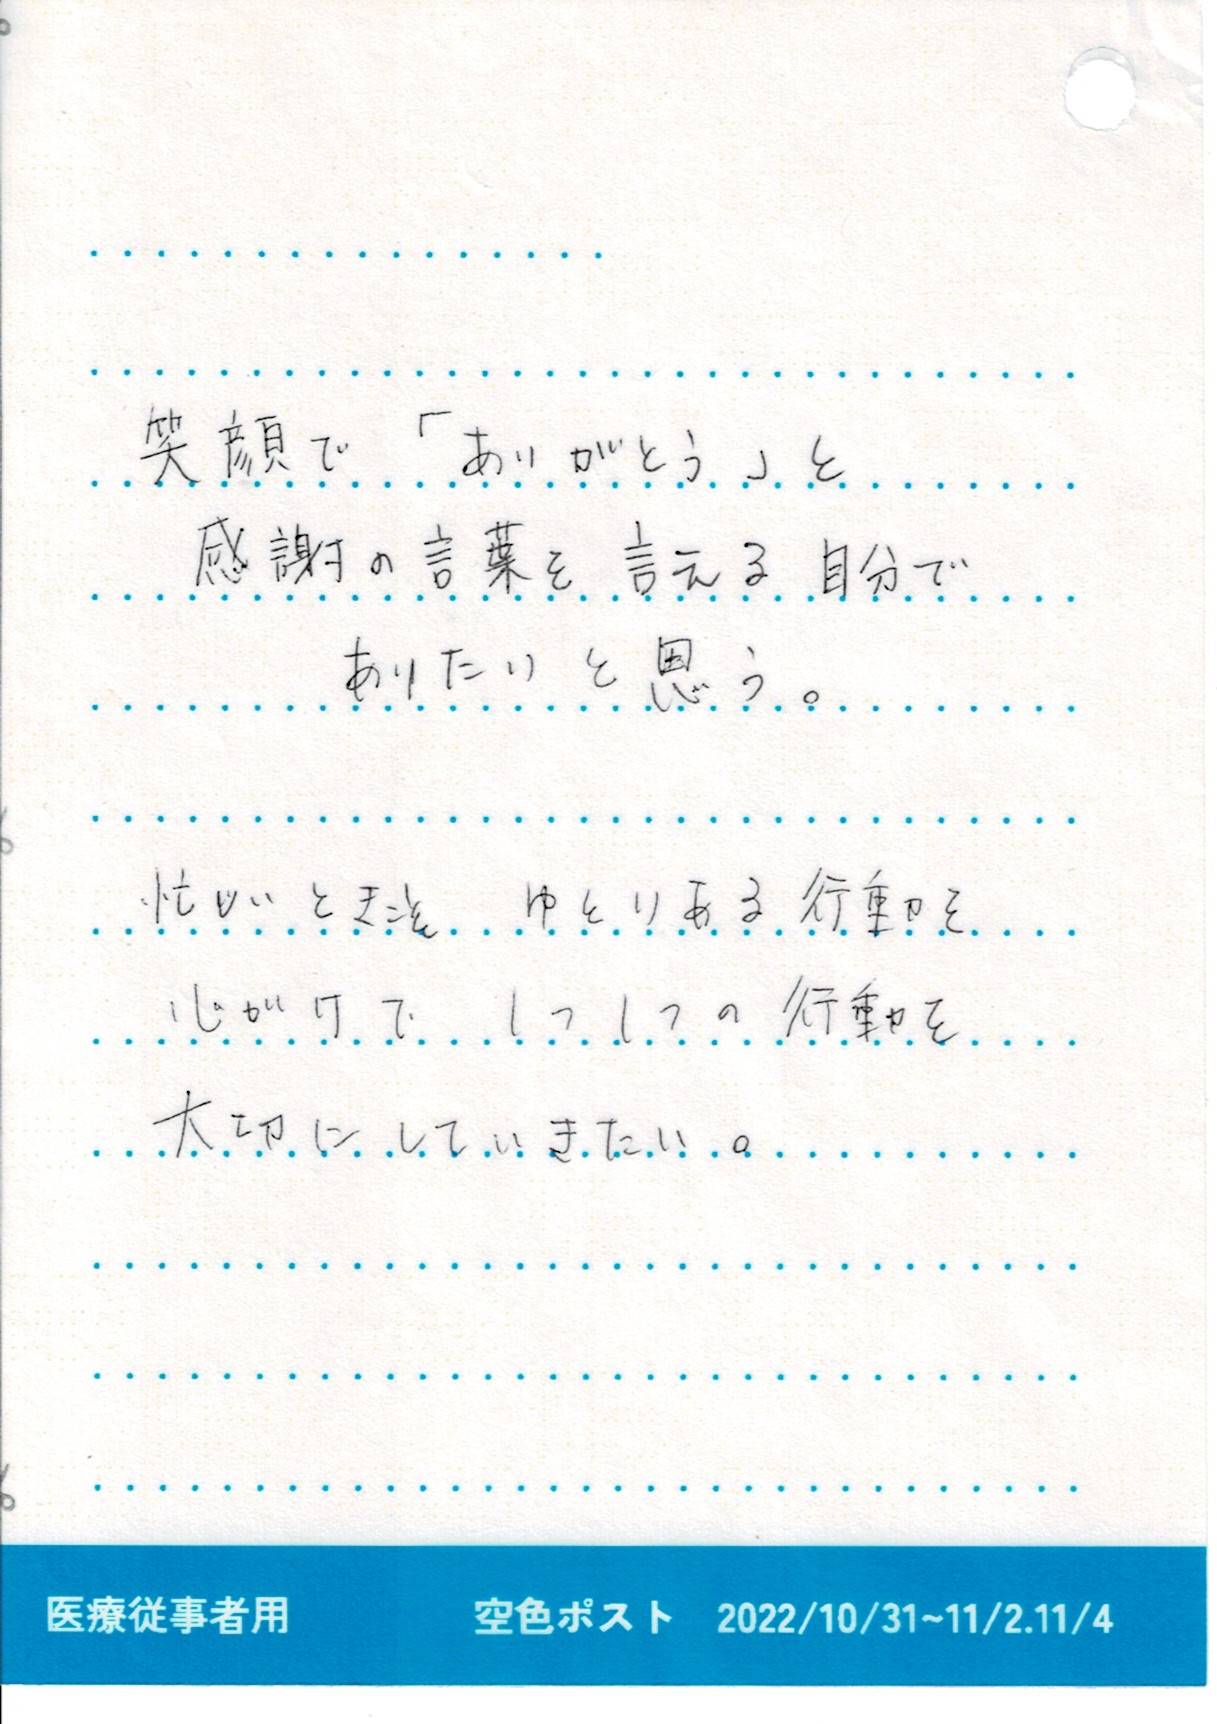 笑顔で「ありがとう」と
感謝の言葉を言える自分で
ありたいと思う。
忙しいときこそ ゆとりある行動を
心がけて 1つ1つの行動を
大切にしていきたい。
医療従事者用 空色ポスト 2022/10/31~11/2.11/4